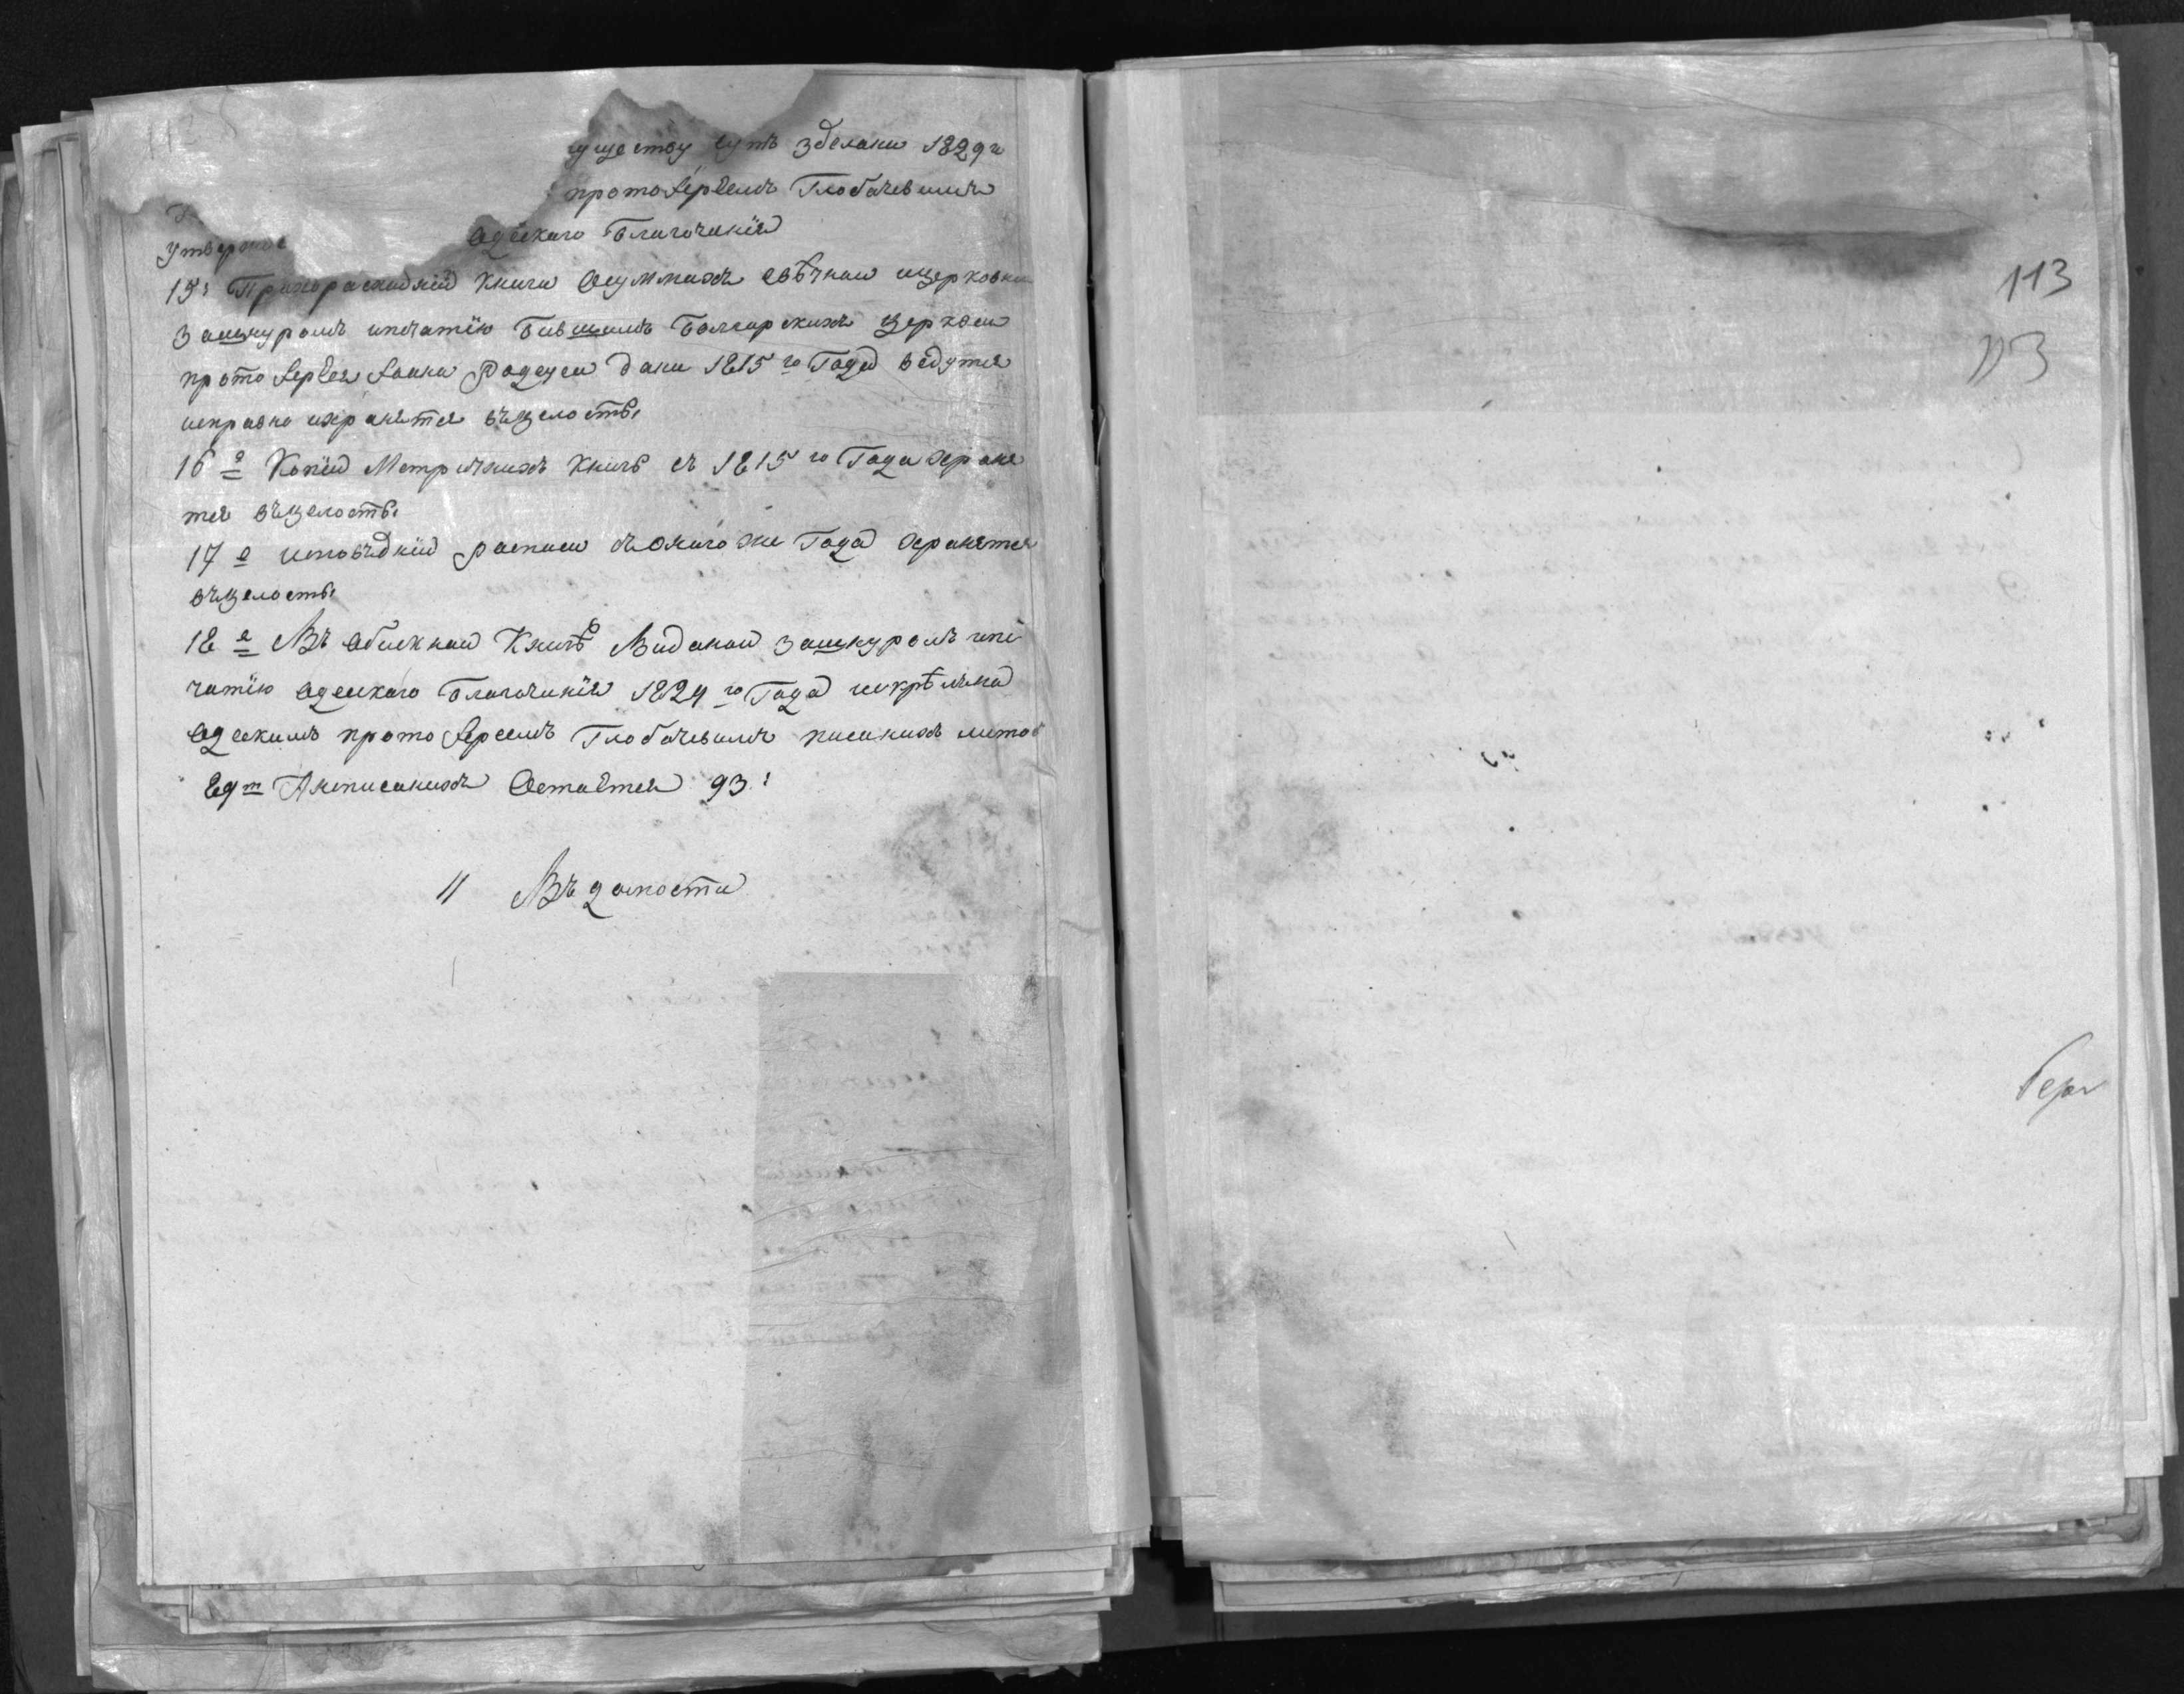 уществу суть зделани 1829 г
протоіереемъ Глобачевимъ
Одескаго Благочинія
Утвержде
15: Прихорасходнїи книги Осуммахъ свѣчнои ицерковно
Зашнуромъ ипечатїю Бившимъ Болгарскихъ Церквеи
протоіерѐя Іоанна Родецеи дани 1815 го Года ведутся
исправно ихранятся въцелостѣ
16 е Копїи Метричнихъ Книгъ съ 1815 го Года хране
тся въцелостѣ
17 е исповѣднїи росписи съоного же Года хранятся
въцелостѣ
18 е Въ Обискнои Книгѣ Виданои Зашнуромъ ипе
чатїю Одескаго Благочинія 1824 го Года искрѣплена
Одескимъ протоіереемъ Глобачевимъ писанихъ листов
Ест Анеписанихъ Остаѐтся 93:
11 Вѣдомости
113
113